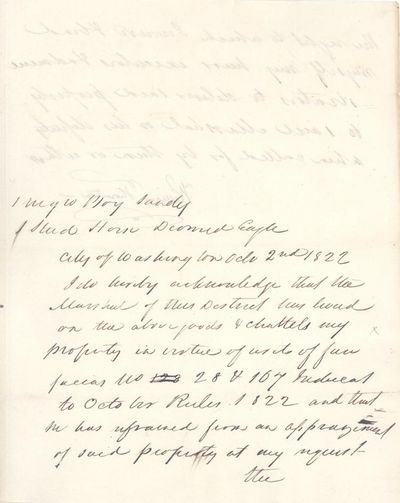 1 negro Boy Sandy
1 Stud Horse Diomed Eagle
City of Washington Octo 2nd 1822
I do hereby acknowledge that the
Marshal of this District has levied
on the above goods & chattels my
property in virtue of writs of fieri
facias No 28 & 107 Iudicat
to October Rules 1822 and that
he has refrained from an appraizement
of said property at my request
the